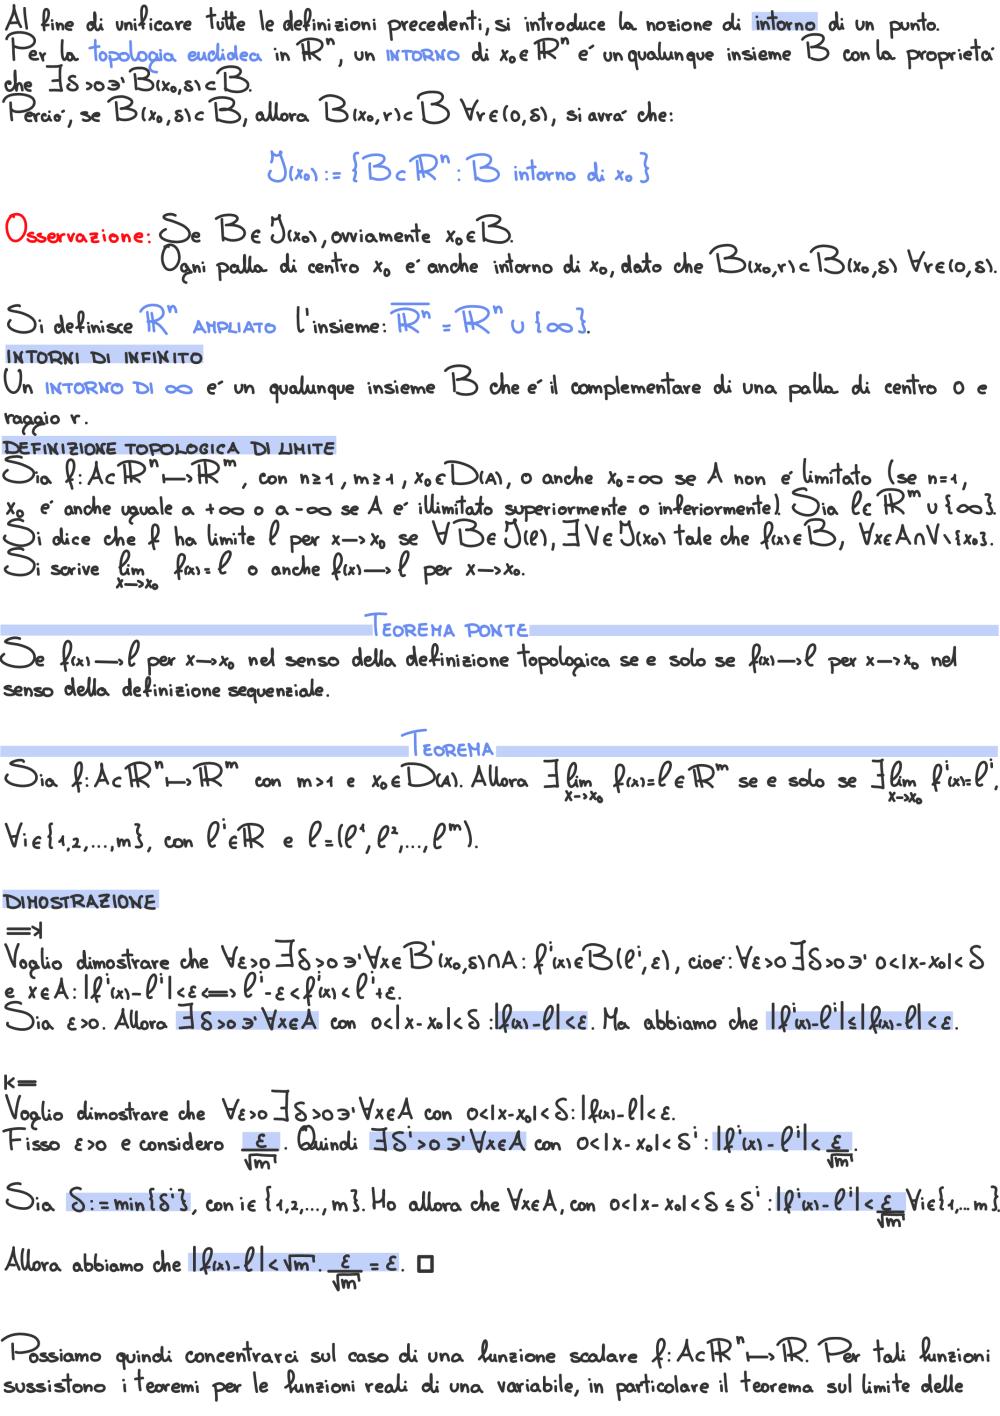 Al fine di unificare tutte le definizioni precedenti, si introduce la nozione di intorno di un punto.
Per la topologia euclidea in ℝⁿ, un INTORNO di x₀∈ℝⁿ e' un qualunque insieme B con la proprieta'
che ∃δ>0∋'B(x₀,δ)⊂B.
Percio', se B(x₀,δ)⊂B, allora B(x₀,r)⊂B ∀r∈(0,δ), si avra' che:
ℐ(x₀):={B⊂ℝⁿ:B intorno di x₀}
Osservazione: Se B∈ℐ(x₀), ovviamente x₀∈B.
Ogni palla di centro x₀ e' anche intorno di x₀, dato che B(x₀,r)⊂B(x₀,δ) ∀r∈(0,δ).
Si definisce ℝⁿ AMPLIATO l'insieme: \overline{ℝⁿ} = ℝⁿ ∪ {∞}.
INTORNI DI INFINITO
Un INTORNO DI ∞ e' un qualunque insieme B che e' il complementare di una palla di centro 0 e
raggio r.
DEFINIZIONE TOPOLOGICA DI LIMITE
Sia f:A⊂ℝⁿ↦ℝᵐ, con n≥1, m≥1, x₀∈D(A), o anche x₀=∞ se A non e' limitato (se n=1,
x₀ e' anche uguale a +∞ o a -∞ se A e' illimitato superiormente o inferiormente). Sia l∈ℝᵐ∪{∞}.
Si dice che f ha limite l per x→x₀ se ∀B∈ℐ(l), ∃V∈ℐ(x₀) tale che f(x)∈B, ∀x∈A∩V\{x₀}.
Si scrive lim_{x→x₀} f(x)=l o anche f(x)→l per x→x₀.
TEOREMA PONTE
Se f(x)→l per x→x₀ nel senso della definizione topologica se e solo se f(x)→l per x→x₀ nel
senso della definizione sequenziale.
TEOREMA
Sia f:A⊂ℝⁿ↦ℝᵐ con m>1 e x₀∈D(A). Allora ∃lim_{x→x₀} f(x)=l∈ℝᵐ se e solo se ∃lim_{x→x₀} fⁱ(x)=lⁱ,
∀i∈{1,2,...,m}, con lⁱ∈ℝ e l=(l¹,l²,...,lᵐ).
DIMOSTRAZIONE
⟹|
Voglio dimostrare che ∀ε>0 ∃δ>0∋'∀x∈B'(x₀,δ)∩A: fⁱ(x)∈B(lⁱ,ε), cioe': ∀ε>0 ∃δ>0∋' 0<|x-x₀|<δ
e x∈A: |fⁱ(x)-lⁱ|<ε⟺lⁱ-ε<fⁱ(x)<lⁱ+ε.
Sia ε>0. Allora ∃δ>0∋'∀x∈A con 0<|x-x₀|<δ:|f(x)-l|<ε. Ma abbiamo che |fⁱ(x)-lⁱ|≤|f(x)-l|<ε.
|⟸
Voglio dimostrare che ∀ε>0 ∃δ>0∋'∀x∈A con 0<|x-x₀|<δ: |f(x)-l|<ε.
Fisso ε>0 e considero ε/√m. Quindi ∃δⁱ>0∋'∀x∈A con 0<|x-x₀|<δⁱ:|fⁱ(x)-lⁱ|<ε/√m.
Sia δ:=min{δⁱ}, con i∈{1,2,...,m}. Ho allora che ∀x∈A, con 0<|x-x₀|<δ≤δⁱ:|fⁱ(x)-lⁱ|<ε/√m ∀i∈{1,...m}.
Allora abbiamo che |f(x)-l|<√m·ε/√m=ε. □
Possiamo quindi concentrarci sul caso di una funzione scalare f:A⊂ℝⁿ↦ℝ. Per tali funzioni
sussistono i teoremi per le funzioni reali di una variabile, in particolare il teorema sul limite delle